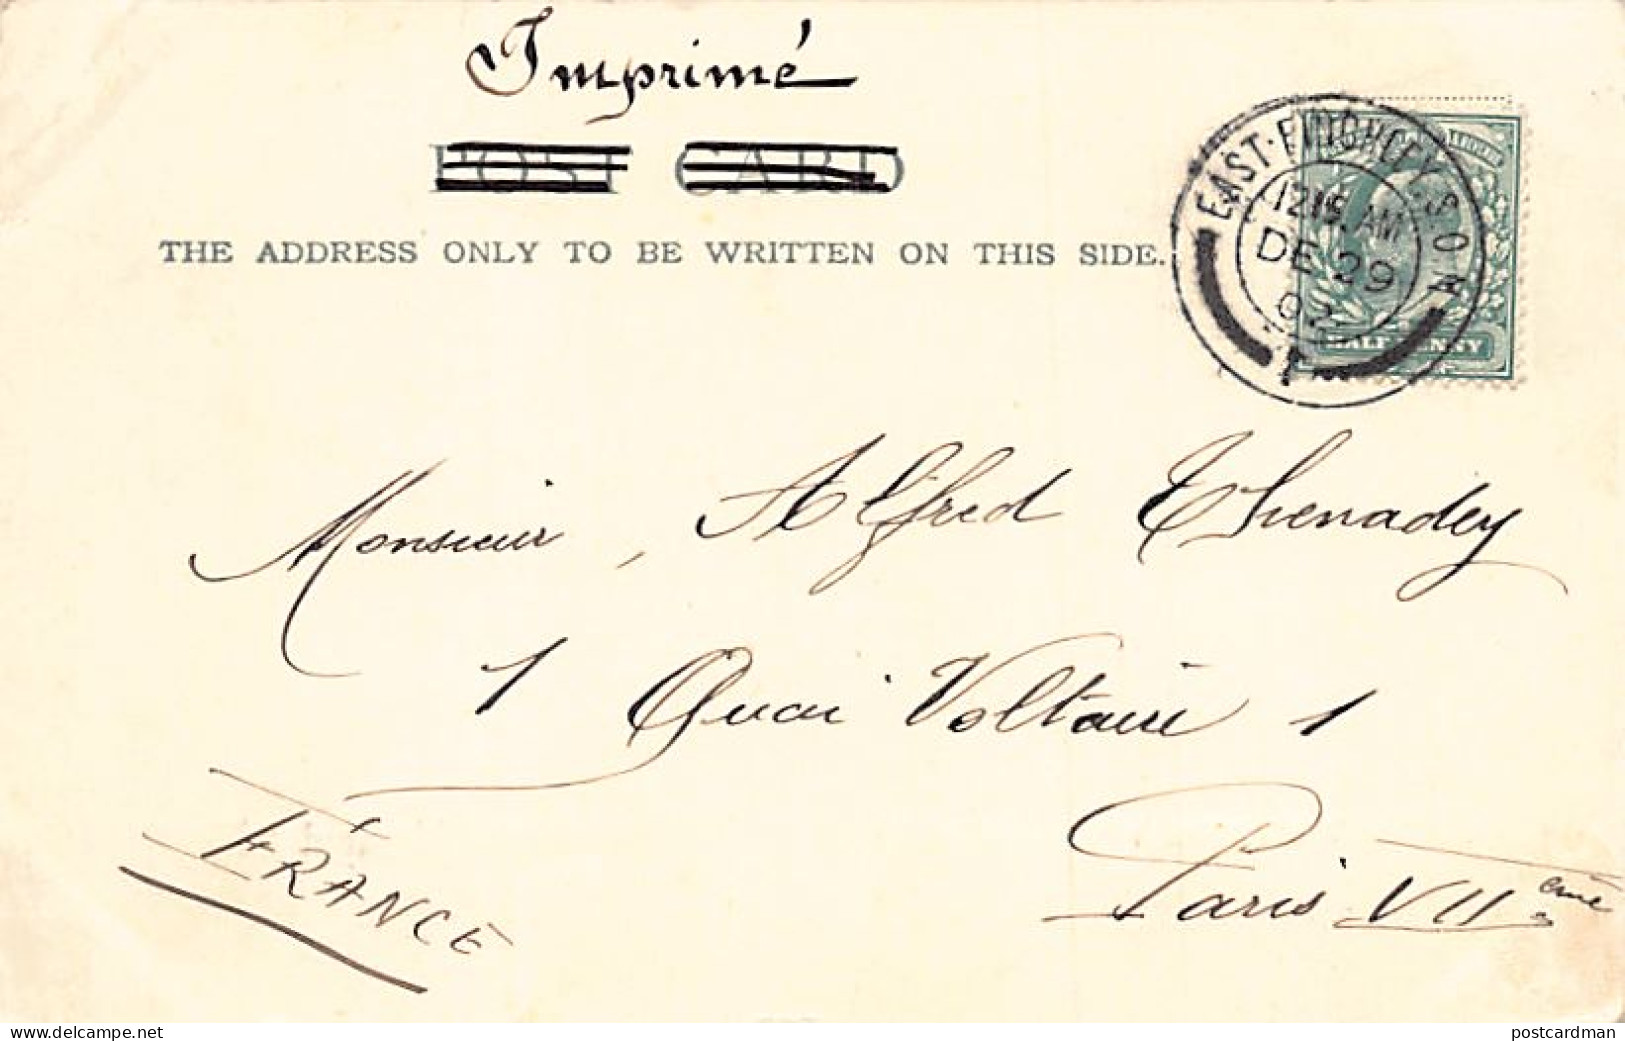 Imprimé
POST CARD
THE ADDRESS ONLY TO BE WRITTEN ON THIS SIDE.
EAST·FINCHLEY.S.O.
12 15 AM
DE 29
02
HALF PENNY
Monsieur, Alfred Thenadey
1 Quai Voltaire 1
Paris VIIeme
FRANCE
www.delcampe.net
postcardman